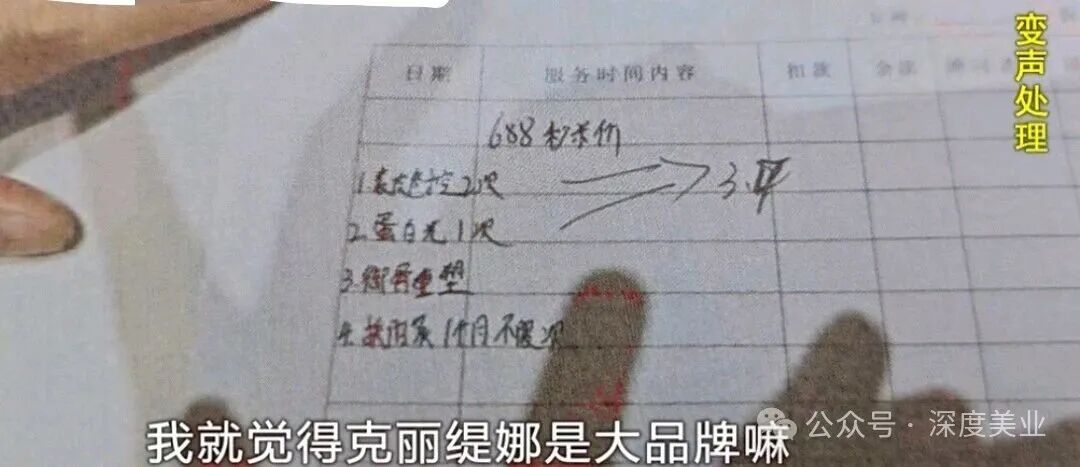 变声处理
日期 服务时间内容 扣款 余款
688秒杀价
2次 3.
2.蛋白光1次
3.重塑
4. 1个月不限次
我就觉得克丽缇娜是大品牌嘛
公众号·深度美业